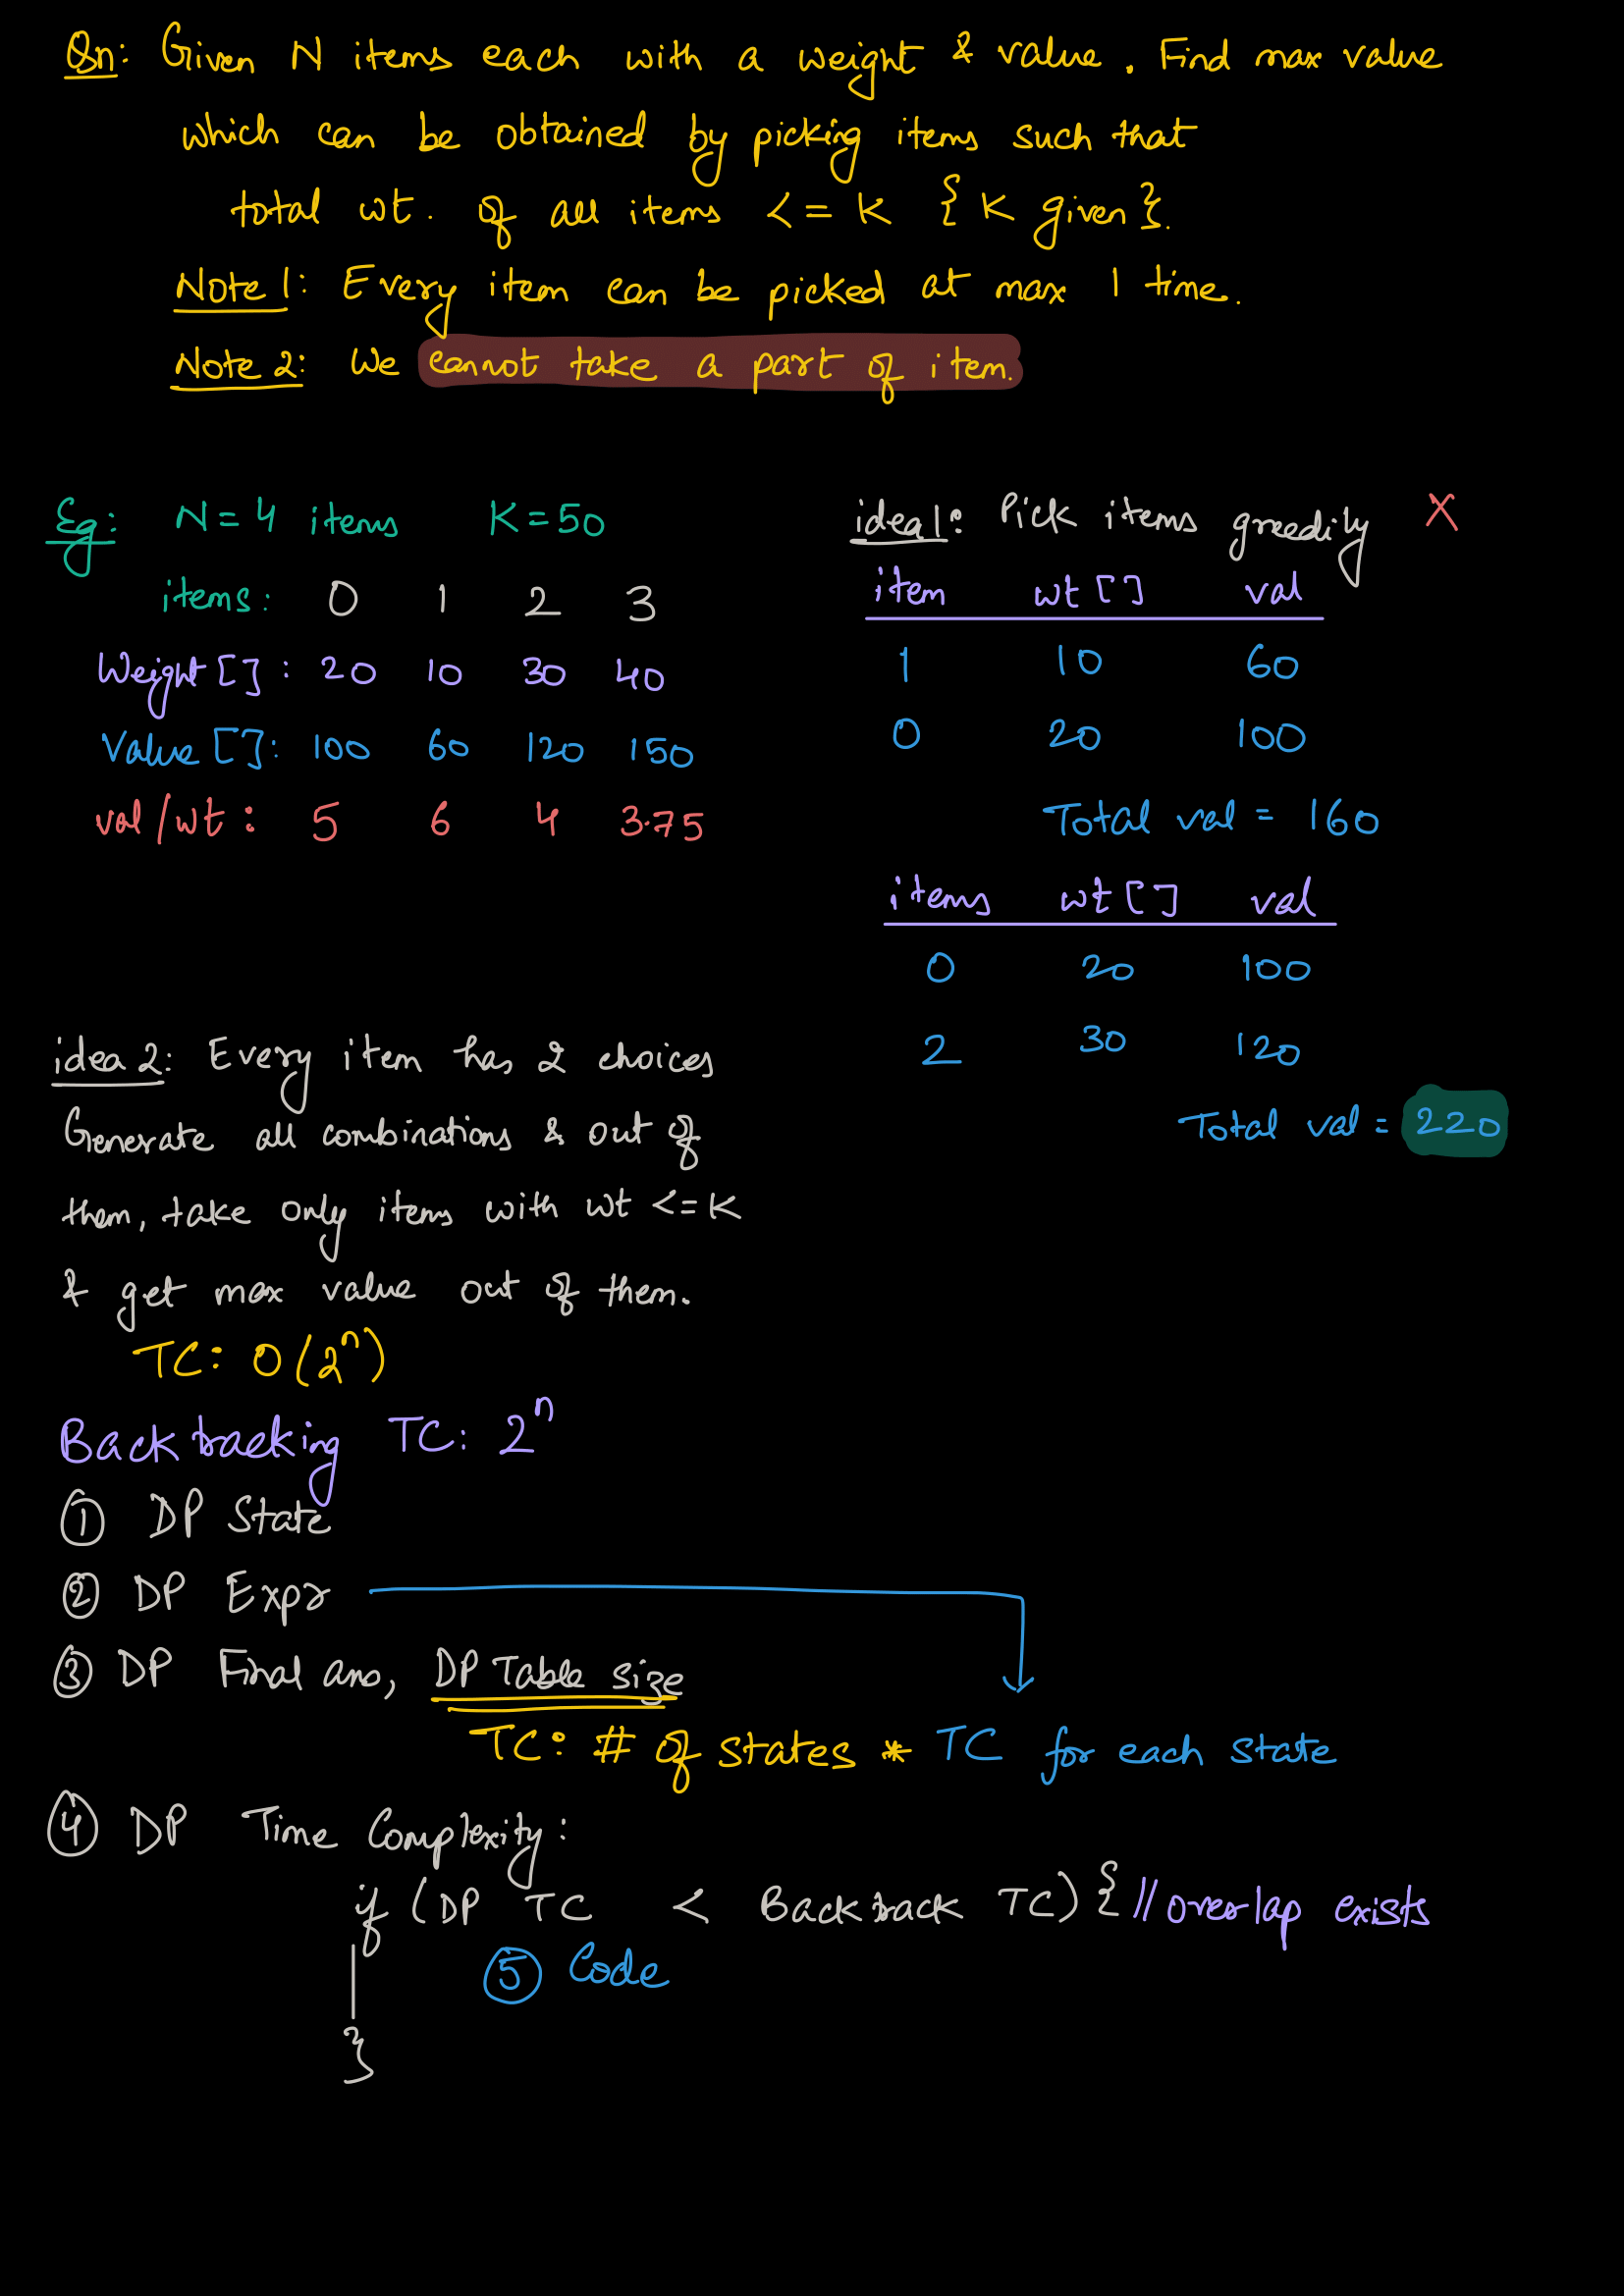 Qn: Given N items each with a weight & value. Find max value
which can be obtained by picking items such that
total wt. of all items <= K {K given}.
Note 1: Every item can be picked at max 1 time.
Note 2: We cannot take a part of item.
Eg: N=4 items K=50
items: 0 1 2 3
Weight[]: 20 10 30 40
Value[]: 100 60 120 150
val/wt: 5 6 4 3.75
idea1: Pick items greedily X
item wt[] val
1 10 60
0 20 100
Total val = 160
items wt[] val
0 20 100
2 30 120
Total val = 220
idea 2: Every item has 2 choices
Generate all combinations & out of
them, take only items with wt <=K
& get max value out of them.
TC: O(2^n)
Backtracking TC: 2^n
① DP State
② DP Expr
③ DP Final ans, DP Table size
TC: # of states * TC for each state
④ DP Time Complexity:
if (DP TC < Backtrack TC) { // overlap exists
⑤ Code
}